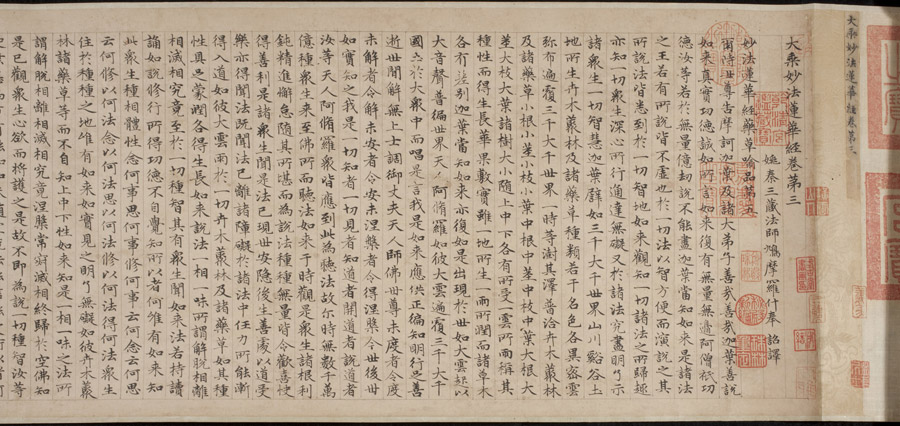 大乘妙法蓮華經卷第三
大乘妙法蓮華經卷第三
姚秦三藏法師鳩摩羅什奉 詔譯
妙法蓮華經藥草喻品第五
爾時世尊告摩訶迦葉及諸大弟子善哉善哉迦葉善說
如來真實功德誠如所言如來復有無量無邊阿僧祇功
德汝等若於無量億劫說不能盡迦葉當知如來是諸法
之王若有所說皆不虛也於一切法以智方便而演說之其
所說法皆悉到於一切智地如來觀知一切諸法之所歸趣
亦知一切眾生深心所行通達無礙又於諸法究盡明了示
諸眾生一切智慧迦葉譬如三千大千世界山川谿谷土
地所生卉木叢林及諸藥草種類若干名色各異密雲
彌布遍覆三千大千世界一時等澍其澤普洽卉木叢林
及諸藥草小根小莖小枝小葉中根中莖中枝中葉大根大
莖大枝大葉諸樹大小隨上中下各有所受一雲所雨稱其
種性而得生長華菓敷實雖一地所生一雨所潤而諸草木
各有差別迦葉當知如來亦復如是出現於世如大雲起以
大音聲普遍世界天人阿脩羅如彼大雲遍覆三千大千
國土於大眾中而唱是言我是如來應供正遍知明行足善
逝世間解無上士調御丈夫天人師佛世尊未度者令度
未解者令解未安者令安未涅槃者令得涅槃今世後世
如實知之我是一切知者一切見者知道者開道者說道者
汝等天人阿脩羅眾皆應到此為聽法故爾時無數千萬
億種眾生來至佛所而聽法如來于時觀是眾生諸根利
鈍精進懈怠隨其所堪而為說法種種無量皆令歡喜快
得善利是諸眾生聞是法已現世安隱後生善處以道受
樂亦得聞法既聞法已離諸障礙於諸法中任力所能漸
得入道如彼大雲雨於一切卉木叢林及諸藥草如其種
性具足蒙潤各得生長如來說法一相一味所謂解脫相離
相滅相究竟至於一切種智其有眾生聞如來法若持讀
誦如說修行所得功德不自覺知所以者何唯有如來知
此眾生種相體性念何事思何事修何事云何念云何思
云何修以何法念以何法思以何法修以何法得何法眾生
住於種種之地唯有如來如實見之明了無礙如彼卉木叢
林諸藥草等而不自知上中下性如來知是一相一味之法所
謂解脫相離相滅相究竟涅槃常寂滅相終歸於空佛知
是已觀眾生心欲而將護之是故不即為說一切種智汝等